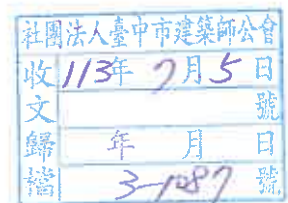 社團法人臺中市建築師公會
收文 113年 7月 5日
號
歸檔 年 月 日
3-1087 號